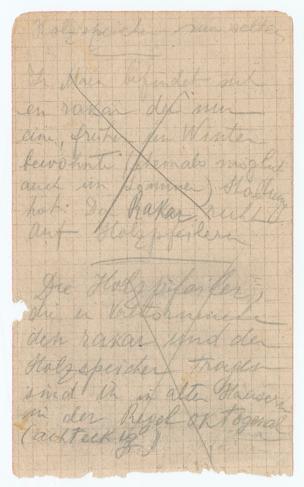 Holzspeicher nur selten
In Main befindet sich
ein rakar der nur
eine, früher im Winter
bewohnte (niemals möglich
auch im Sommer) Stallung
hat. Der Rakar ruht
auf Holzpfeilern
Die Holzpfeiler,
die er
den rakar und den
Holzspeicher tragen
sind in alten Häusern
in der Regel oktogonal
(achteckig)